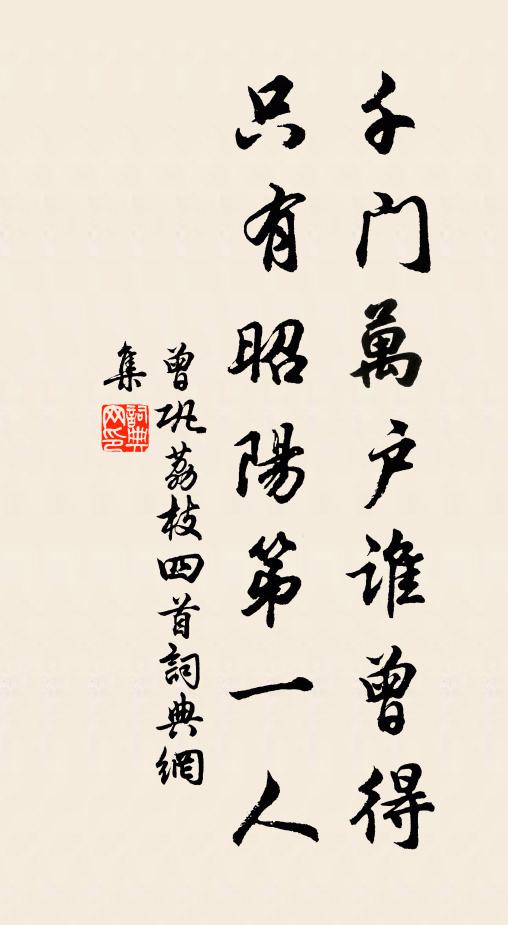 千門萬户誰曾得
只有昭陽第一人
曾巩荔枝四首詞典網
集
詞典
网印